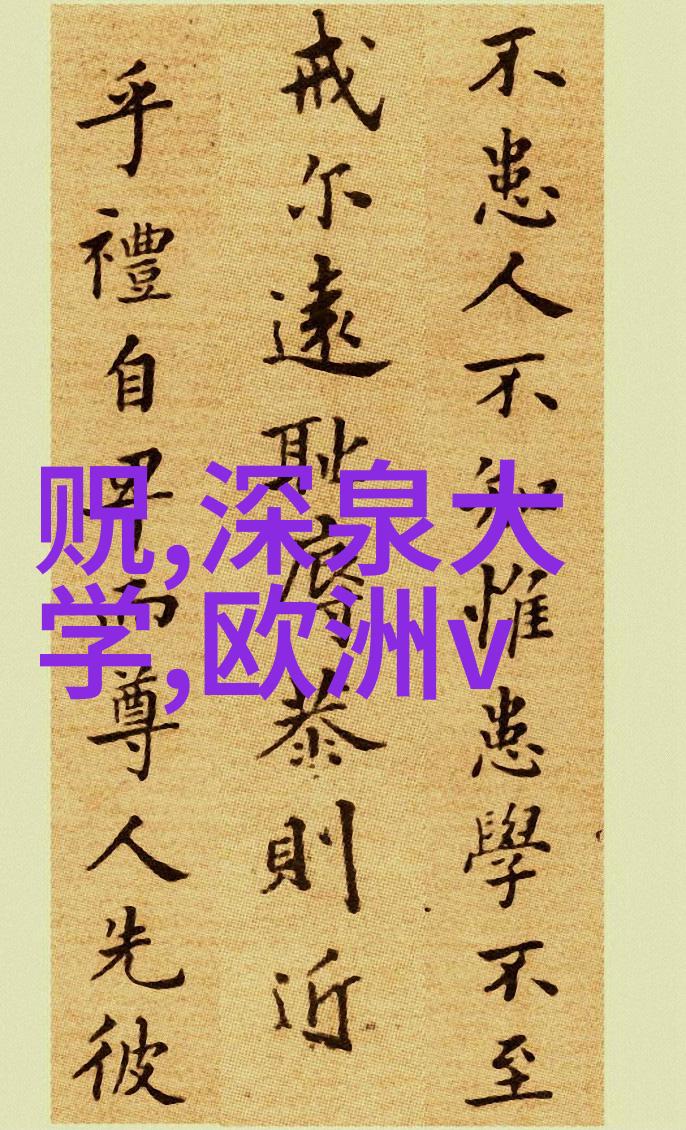 不患人不知惟患學不至
戒尔遠耻辱恭則近
乎禮自卑而尊人先彼
贶,深泉大
学,欧洲v